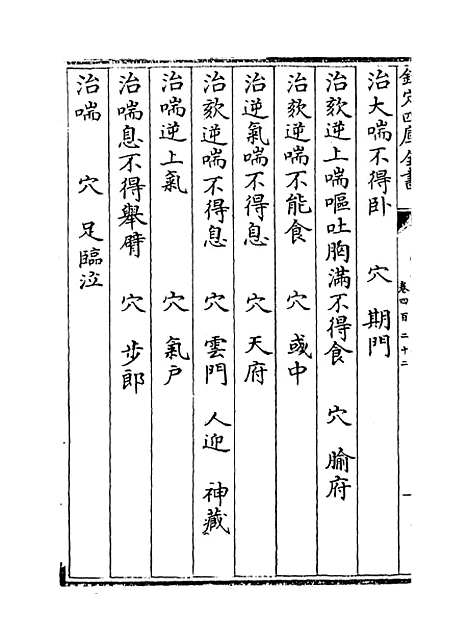 欽定四庫全書
卷四百二十二
治大喘不得卧　穴　期門
治欬逆上喘嘔吐胸滿不得食　穴　腧府
治欬逆喘不能食　穴　彧中
治逆氣喘不得息　穴　天府
治欬逆喘不得息　穴　雲門　人迎　神藏
治喘逆上氣　穴　氣戶
治喘息不得舉臂　穴　步郎
治喘　穴　足臨泣